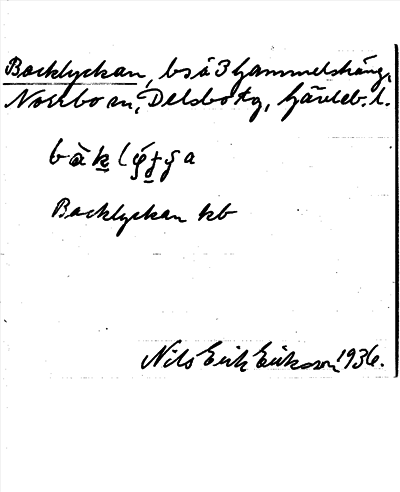 Backlyckan, bs å 3 Gammelsäng,
Norrbo sn, Delsbo tg, Gävleb. l.
Backlyckan kb
Nils Erik Eriksson 1936.